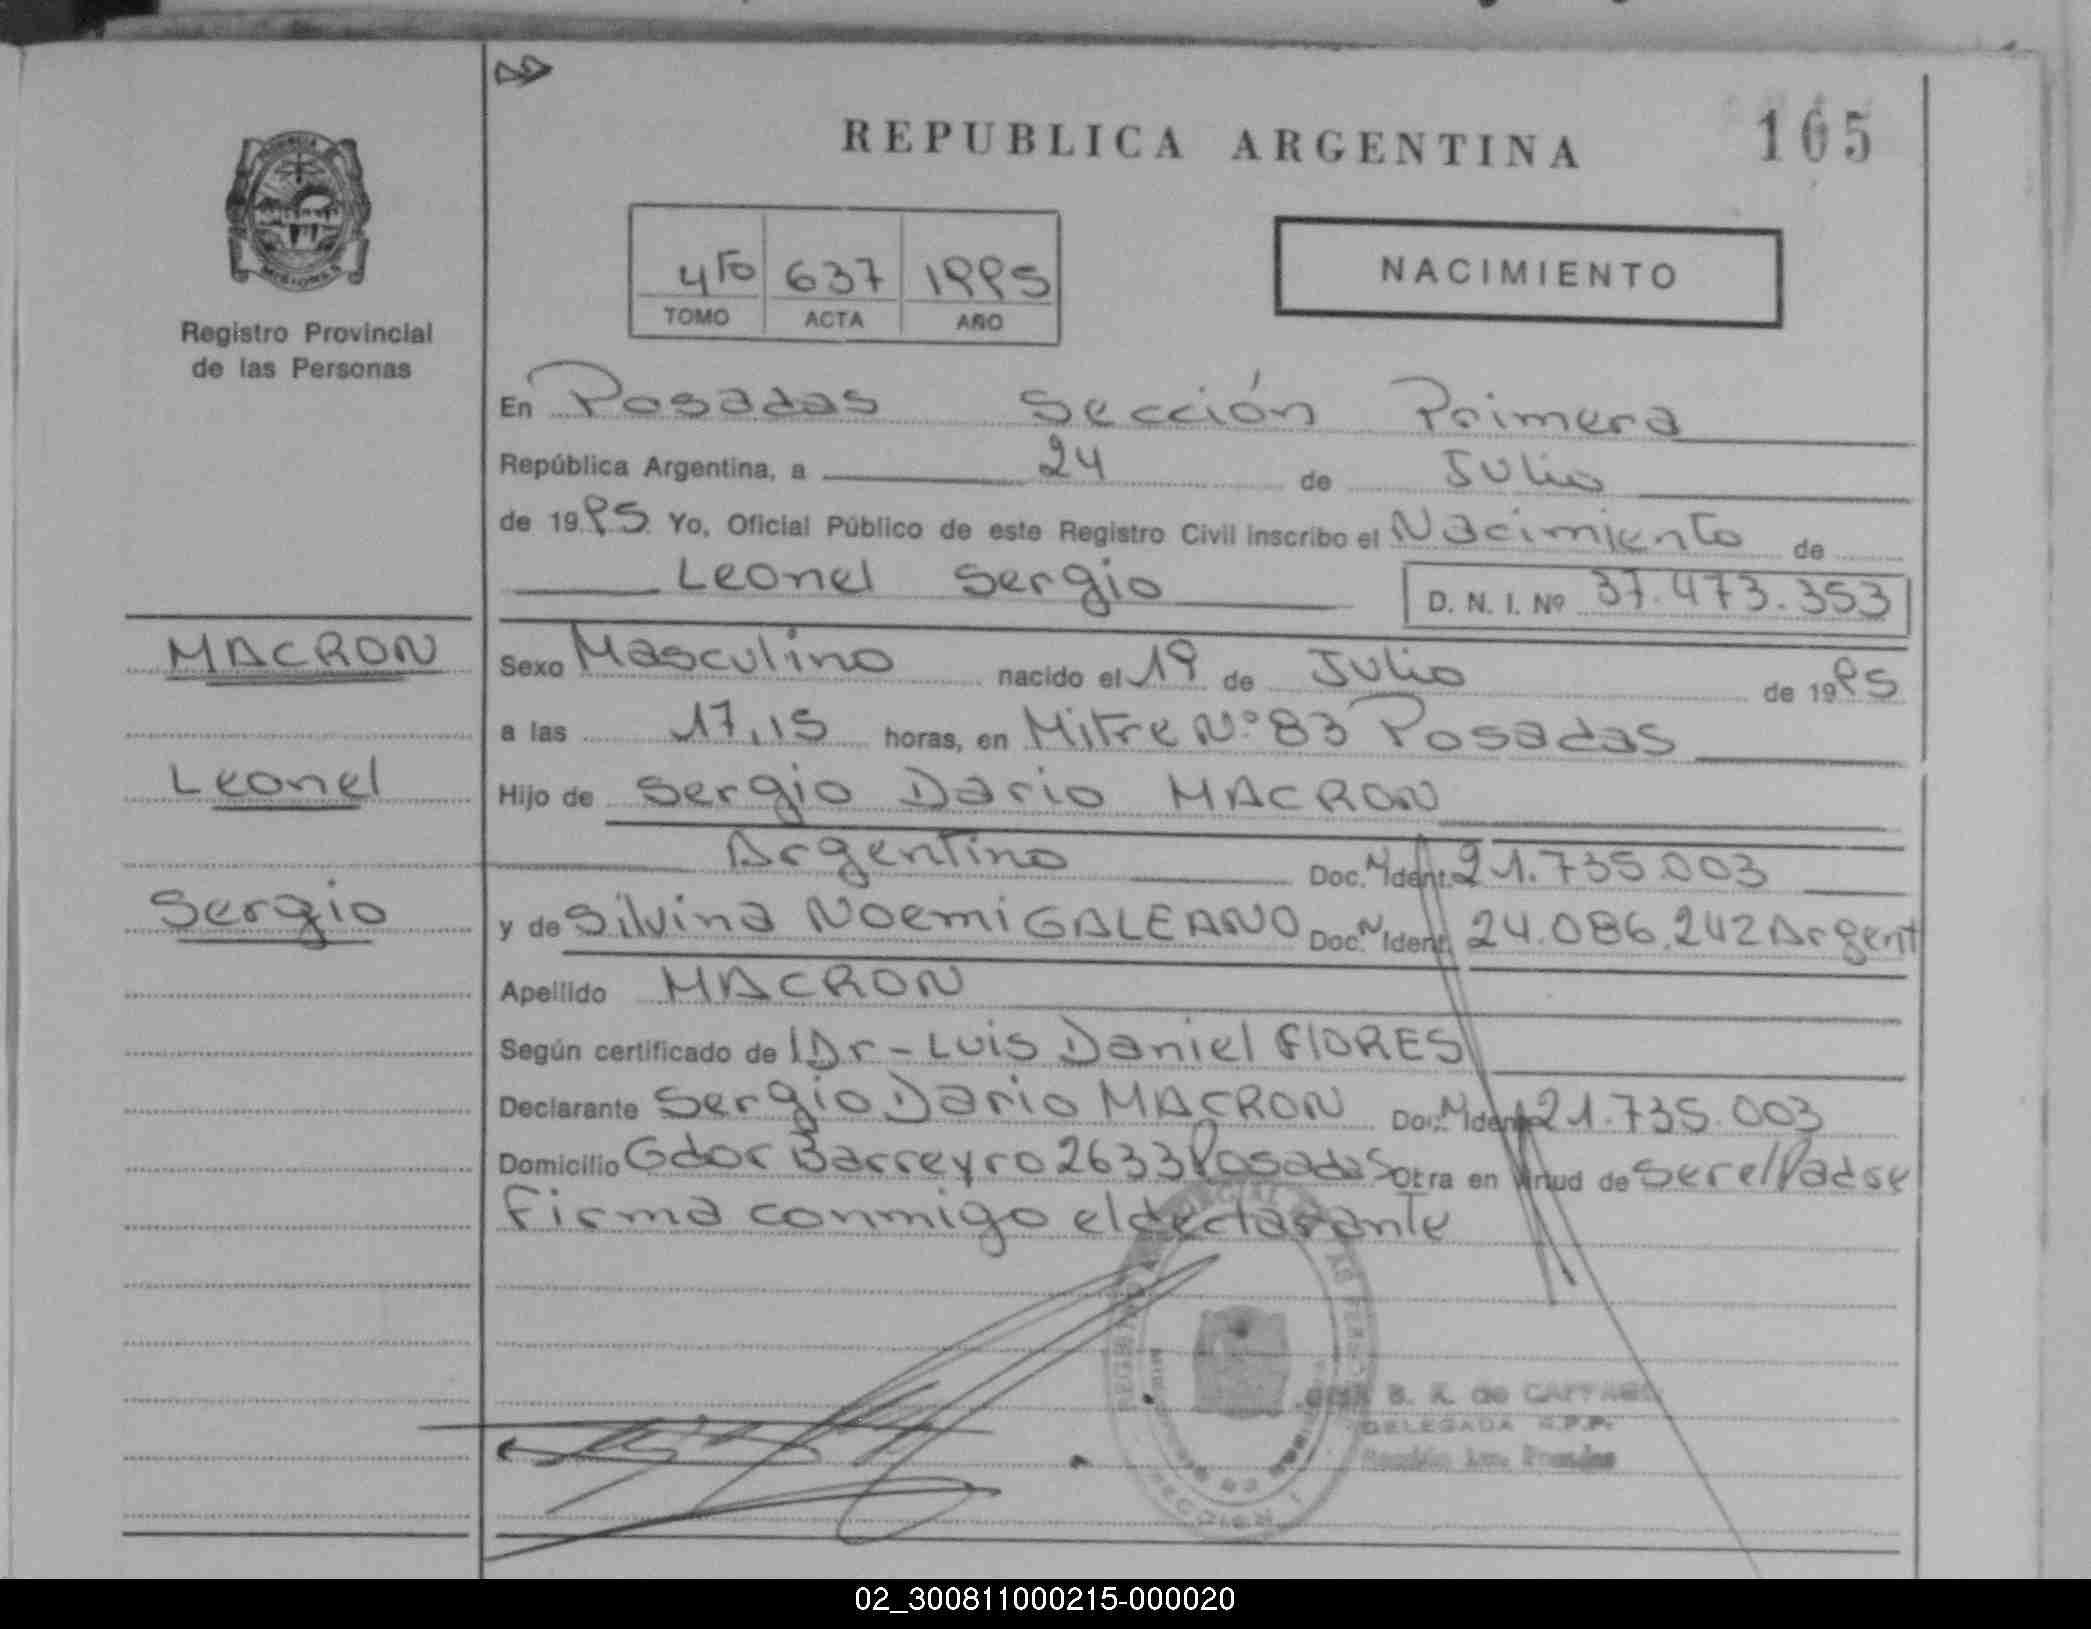 REPUBLICA ARGENTINA
165
4to 637 1995
TOMO ACTA AÑO
NACIMIENTO
MISIONES
Registro Provincial
de las Personas
En Posadas Sección Primera
República Argentina, a 24 de Julio
de 1995 Yo, Oficial Público de este Registro Civil inscribo el Nacimiento de
Leonel Sergio D. N. I. Nº 37.473.353
MACRON
Leonel
Sergio
Sexo Masculino nacido el 19 de Julio de 1995
a las 17,15 horas, en Mitre Nº 83 Posadas
Hijo de Sergio Dario MACRON
Argentino Doc. N Ident. 21.735.003
y de Silvina Noemi GALEANO Doc. N Ident. 24.086.242 Argent
Apellido MACRON
Según certificado de l Dr - Luis Daniel FlORES
Declarante Sergio Dario MACRON Doc. N Ident. 21.735.003
Domicilio Gdor Barreyro 2633 Posadas Obra en virtud de ser el Padre
Firma conmigo el declarante
B. K. de
DELEGADA R.P.P.
SECCION 1
02_300811000215-000020